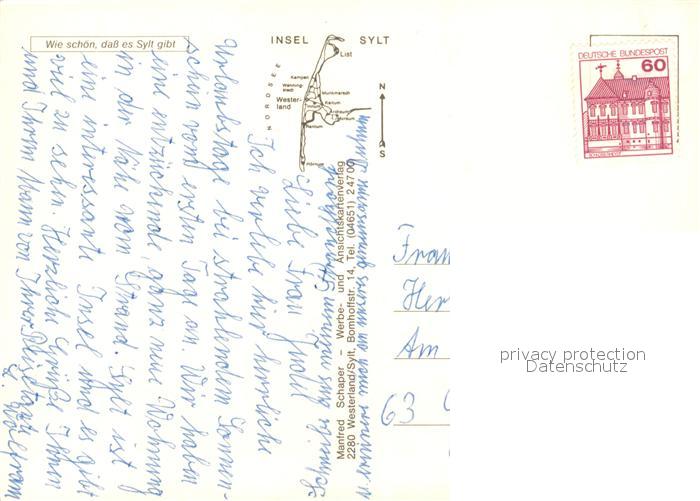 Wie schön, daß es Sylt gibt
INSEL SYLT
List
NORDSEE
Kampen
Wenning-
stedt
Munkmarsch
Wester-
land
Keitum
Rantum
Hörnum
N
S
DEUTSCHE BUNDESPOST
60
Manfred Schaper – Werbe- und Ansichtskartenverlag
2280 Westerland/Sylt, Bomhoffstr. 14, Tel. (04651) 24700
Liebe Frau
Ich verlebe hier herrliche
Urlaubstage bei strahlendem Sonnen-
schein vom ersten Tag an. Wir haben
eine entzückende, ganz neue Wohnung
in der Nähe vom Strand. Sylt ist
eine interessante Insel und es gibt
viel zu sehn. Herzliche Grüße Ihnen
und Ihrem Mann von Ihrer
Frau
Her
Am
63
privacy protection
Datenschutz